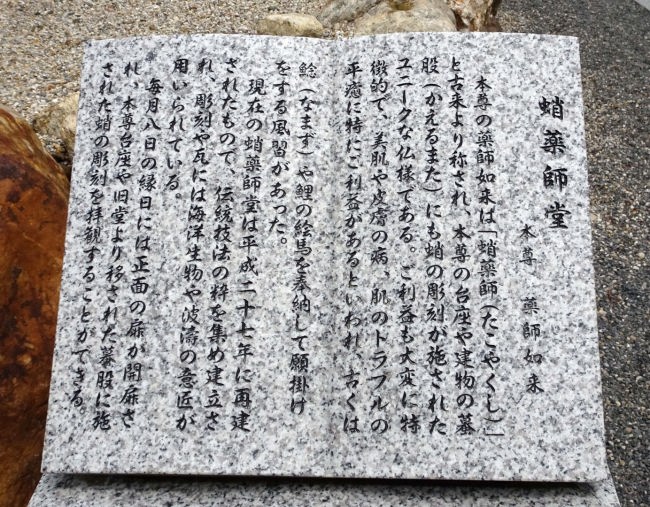 蛸薬師堂
本尊　薬師如来
本尊の薬師如来は「蛸薬師（たこやくし）」
と古来より称され、本尊の台座や建物の蟇
股（かえるまた）にも蛸の彫刻が施された
ユニークな仏様である。ご利益も大変に特
徴的で、美肌や皮膚の病、肌のトラブルの
平癒に特にご利益があるといわれ、古くは
鯰（なまず）や鯉の絵馬を奉納して願掛け
をする風習があった。
現在の蛸薬師堂は平成二十七年に再建
されたもので、伝統技法の粋を集め建立さ
れ、彫刻や瓦には海洋生物や波濤の意匠が
用いられている。
毎月八日の縁日には正面の扉が開扉さ
れ、本尊台座や旧堂より移された蟇股に施
された蛸の彫刻を拝観することができる。